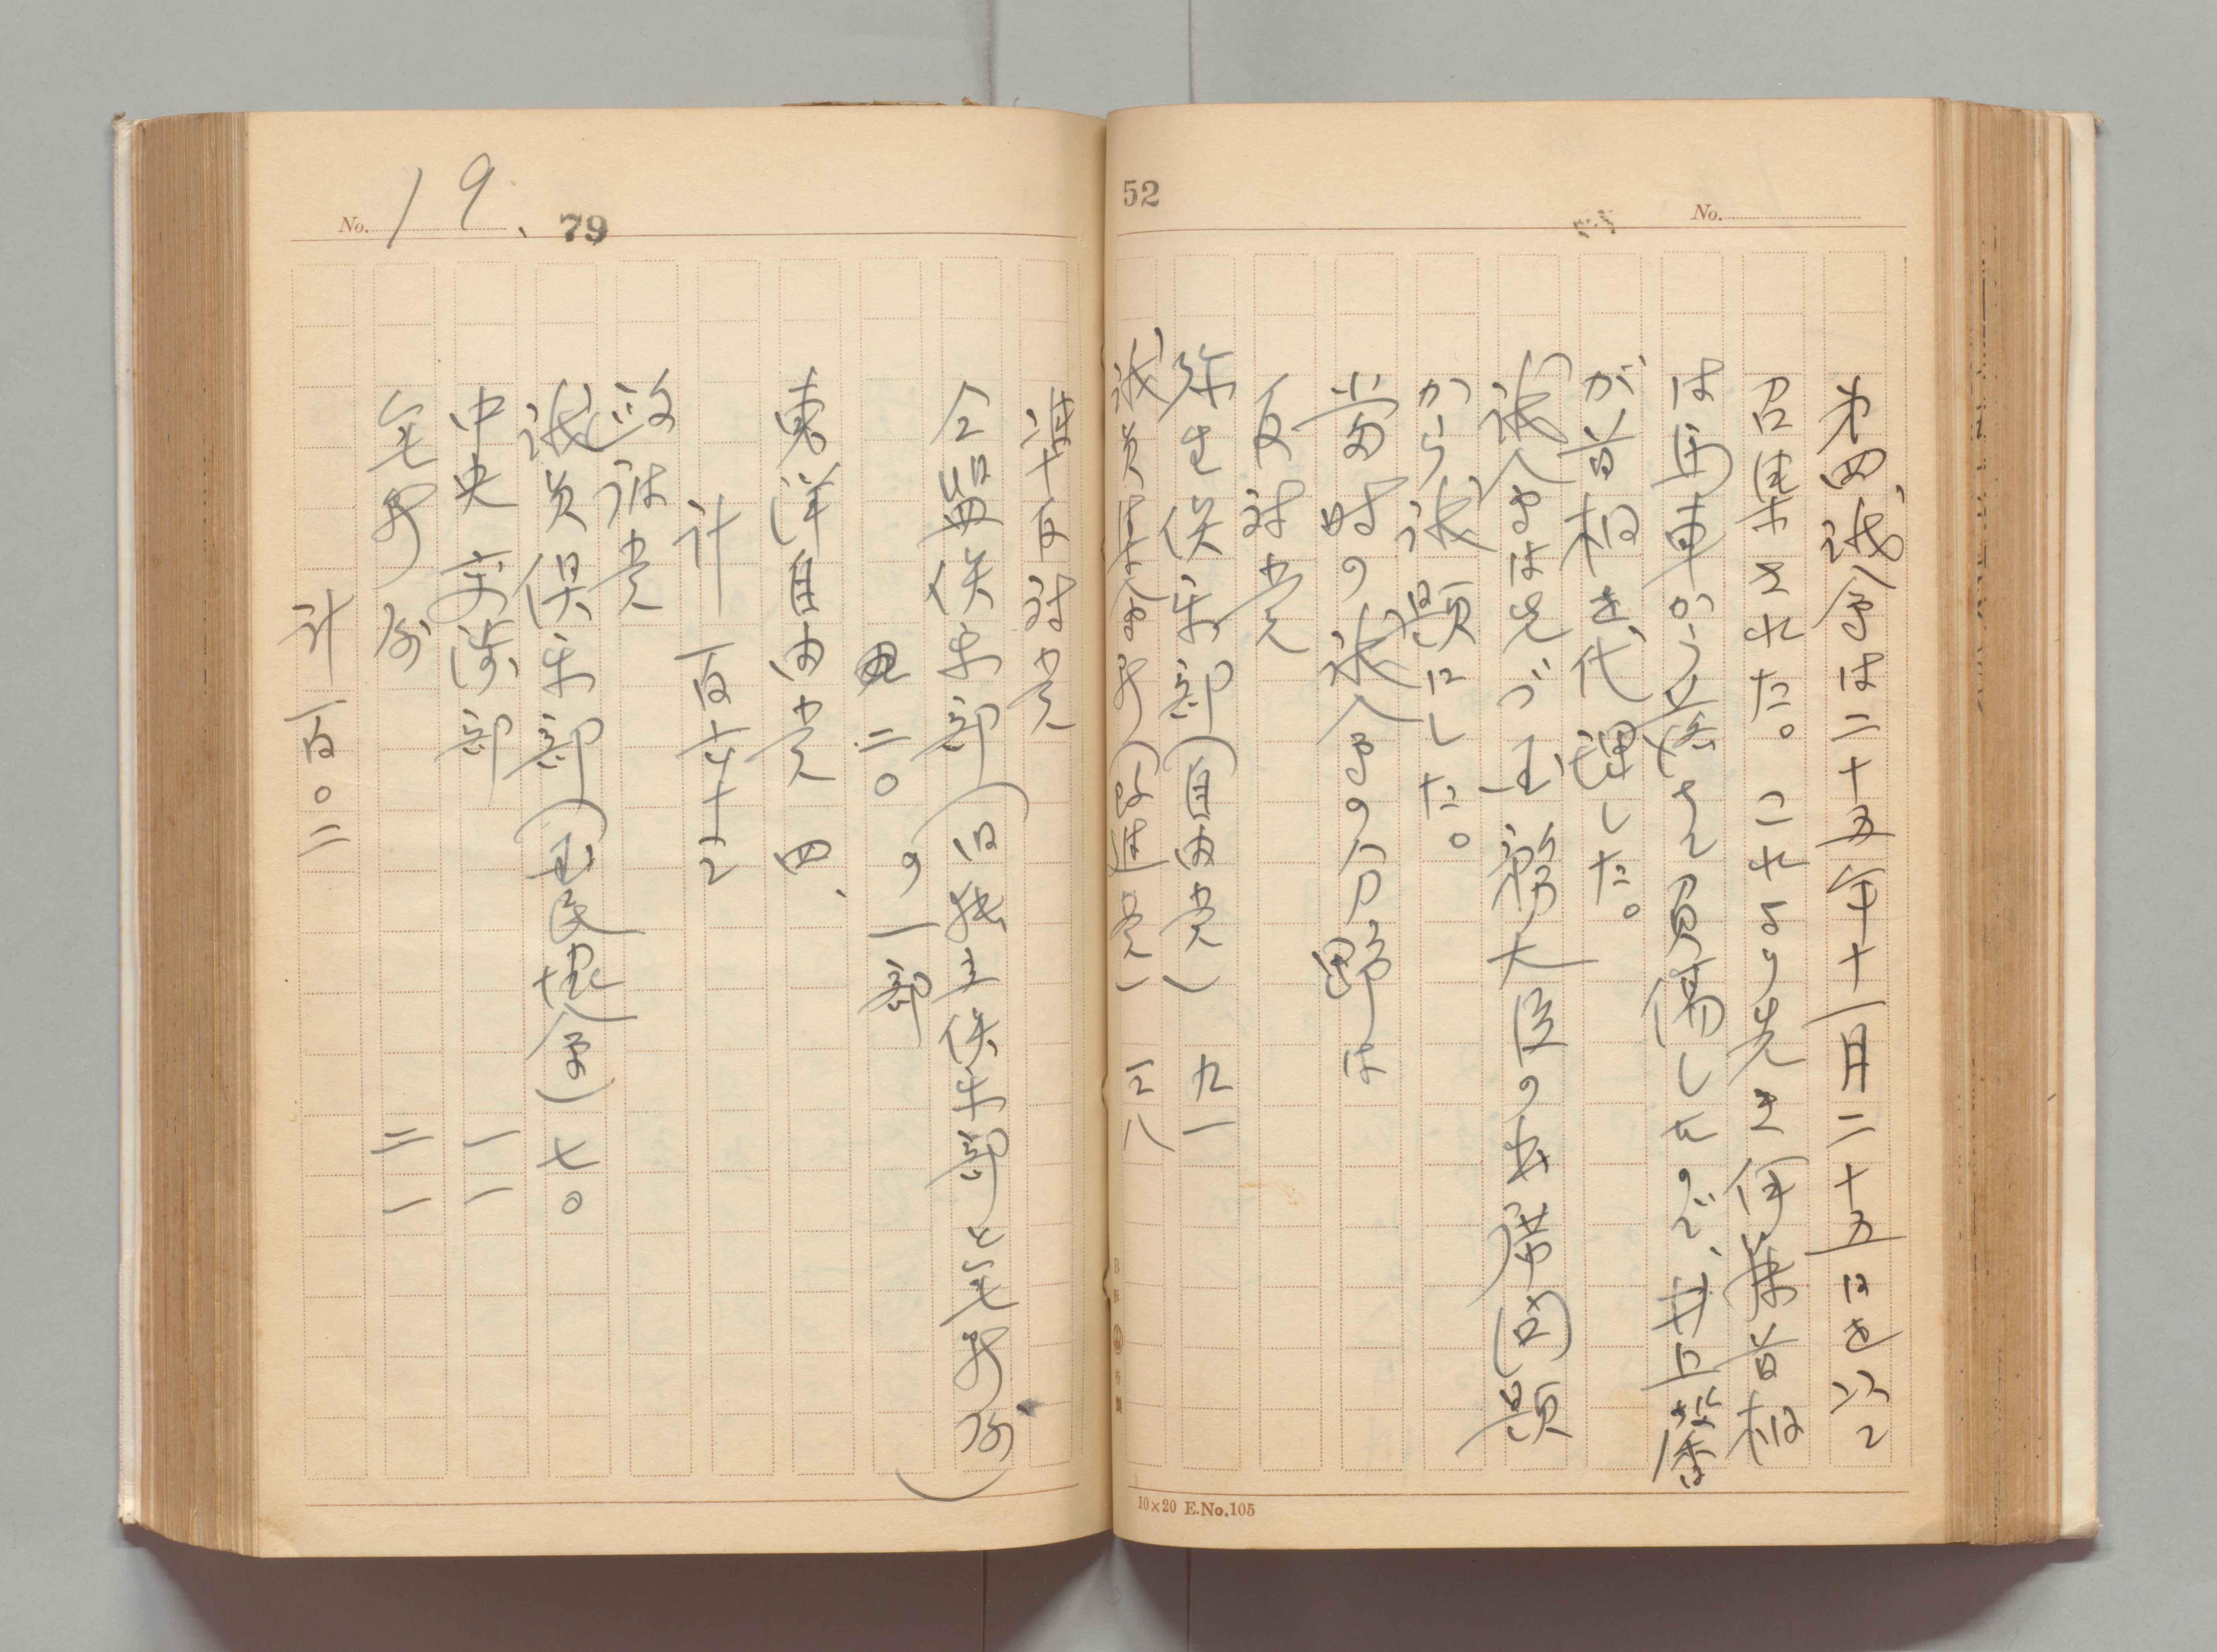 52
No.
第四議会は二十五年十一月二十五日を以て
召集された。これより先き伊藤首相
は馬車から墜落して負傷したので、井上馨
が首相を代理した。
議会ではまづ国務大臣の出席問題
から議題にした。
当時の議会の分野は
反対党
弥生倶楽部(自由党) 九一
議員集会所(改進党) 三八
10×20 E.No.105
No. 19. 79
準反対党
同盟倶楽部(旧独立倶楽部と無所属
の一部) 二〇
東洋自由党 四、
計 百五十三
政府党
議員倶楽部(国民協会) 七〇
中央交渉部 一一
無所属 二一
計 百〇二